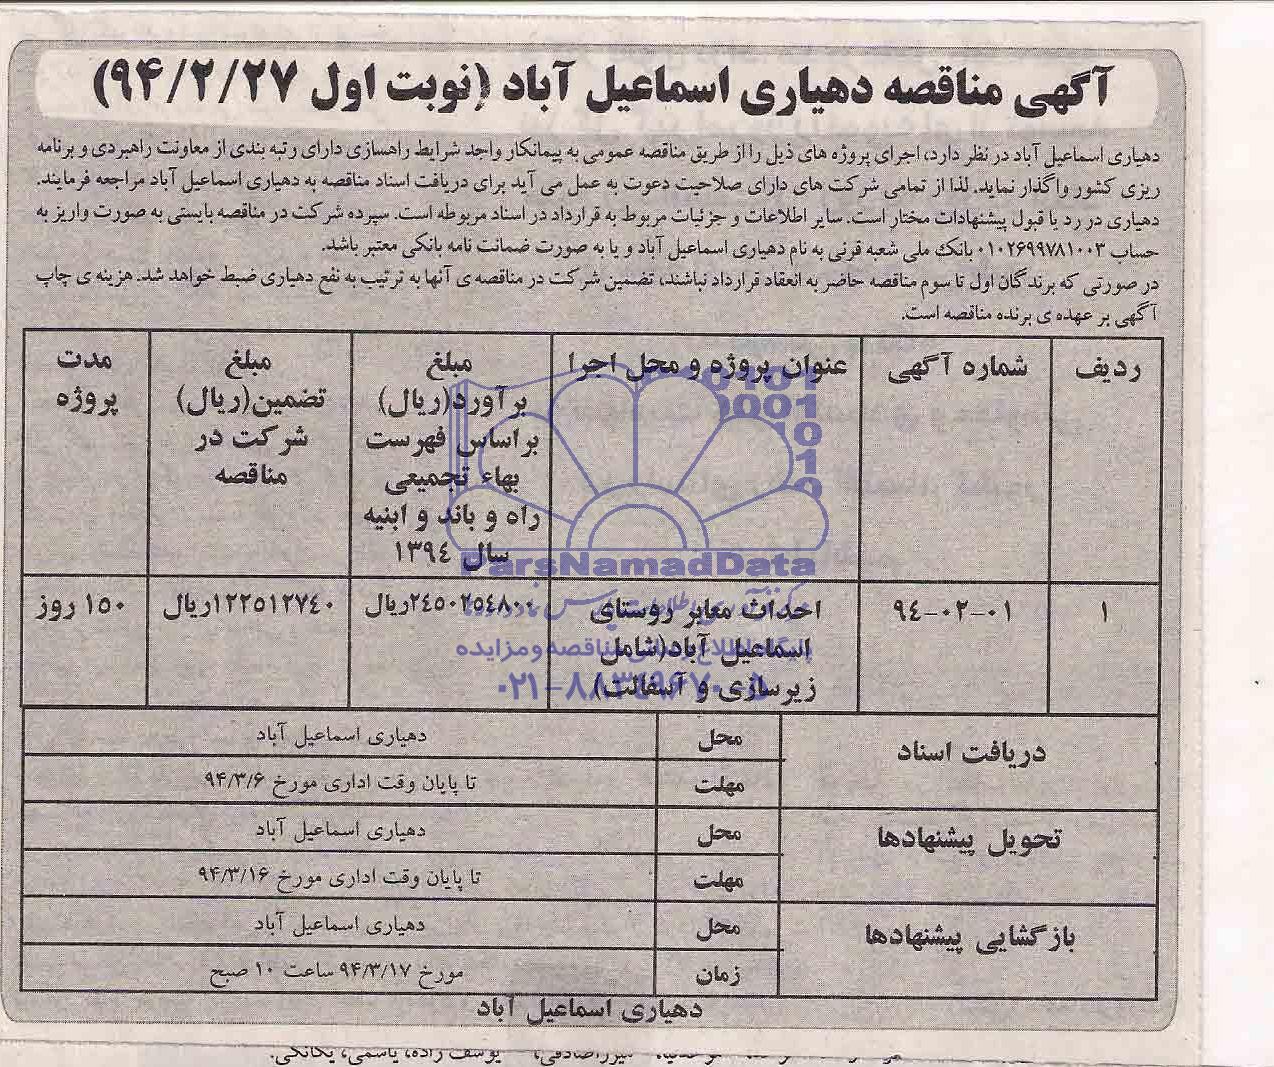 آگهی مناقصه دهیاری اسماعیل آباد (نوبت اول ۹۴/۲/۲۷)
دهیاری اسماعیل آباد در نظر دارد، اجرای پروژه های ذیل را از طریق مناقصه عمومی به پیمانکار واجد شرایط راهسازی دارای رتبه بندی از معاونت راهبردی و برنامه
ریزی کشور واگذار نماید. لذا از تمامی شرکت های دارای صلاحیت دعوت به عمل می آید برای دریافت اسناد مناقصه به دهیاری اسماعیل آباد مراجعه فرمایند.
دهیاری در رد یا قبول پیشنهادات مختار است. سایر اطلاعات و جزئیات مربوط به قرارداد در اسناد مربوطه است. سپرده شرکت در مناقصه بایستی به صورت واریز به
حساب ۰۱۰۲۶۹۹۷۸۱۰۰۳ بانک ملی شعبه قرنی به نام دهیاری اسماعیل آباد و یا به صورت ضمانت نامه بانکی معتبر باشد.
در صورتی که برندگان اول تا سوم مناقصه حاضر به انعقاد قرارداد نباشند، تضمین شرکت در مناقصه ی آنها به ترتیب به نفع دهیاری ضبط خواهد شد. هزینه ی چاپ
آگهی بر عهده ی برنده مناقصه است.
ردیف
شماره آگهی
عنوان پروژه و محل اجرا
مبلغ
برآورد(ریال)
براساس فهرست
بهاء تجمیعی
راه و باند و ابنیه
سال ۱۳۹۴
مبلغ
تضمین(ریال)
شرکت در
مناقصه
مدت
پروژه
۱
۹۴-۰۲-۰۱
احداث معابر روستای
اسماعیل آباد(شامل
زیرسازی و آسفالت)
۲۴۵۰۲۵۴۸۰۰ریال
۱۲۲۵۱۲۷۴۰ریال
۱۵۰ روز
دریافت اسناد
محل
دهیاری اسماعیل آباد
مهلت
تا پایان وقت اداری مورخ ۹۴/۳/۶
تحویل پیشنهادها
محل
دهیاری اسماعیل آباد
مهلت
تا پایان وقت اداری مورخ ۹۴/۳/۱۶
بازگشایی پیشنهادها
محل
دهیاری اسماعیل آباد
زمان
مورخ ۹۴/۳/۱۷ ساعت ۱۰ صبح
دهیاری اسماعیل آباد
ParsNamadData
پایگاه اطلاع رسانی مناقصه و مزایده
۰۲۱-۸۸۳۴۹۶۷۰-۵
یوسف زاده، یاسمی، یکانکی.